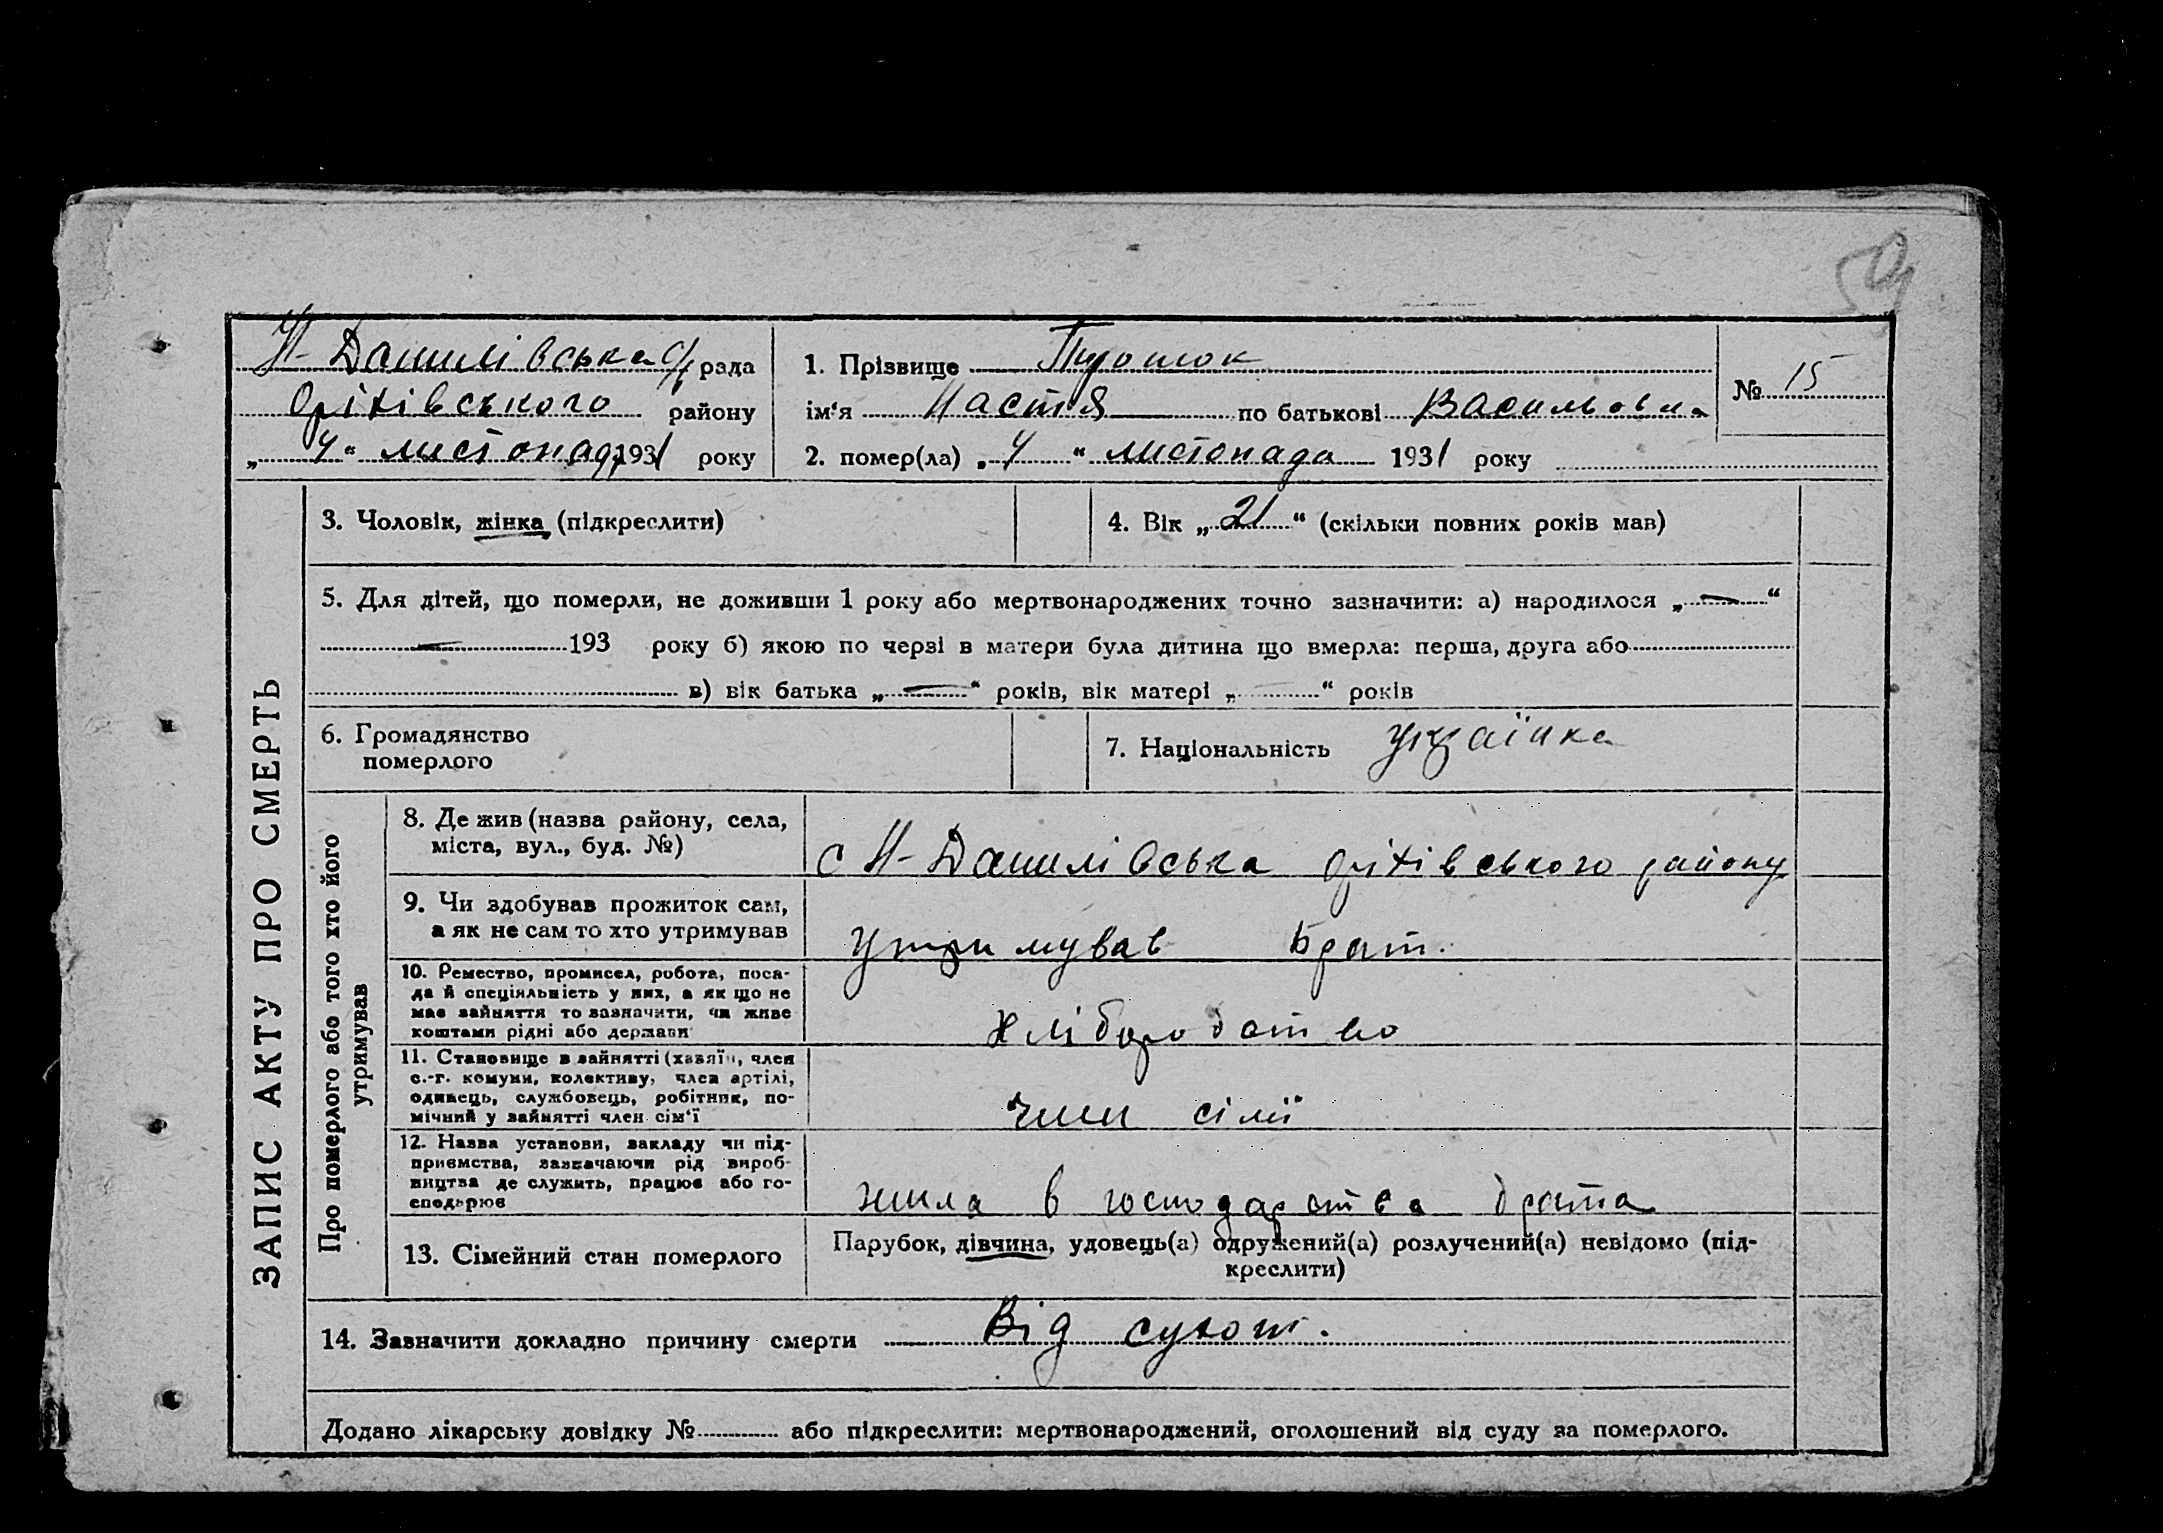 59
Н-Данилівська с/ рада
Оріхівського району
„4“ листопада 1931 року
1. Прізвище
ім‘я Настя по батькові Васильовна
2. помер(ла) „4“ листопада 1931 року
№ 15
ЗАПИС АКТУ ПРО СМЕРТЬ
3. Чоловік, жінка (підкреслити)
4. Вік „21“ (скільки повних років мав)
5. Для дітей, що померли, не доживши 1 року або мертвонароджених точно зазначити: а) народилося „—“
— 193 року б) якою по черзі в матери була дитина що вмерла: перша, друга або
в) вік батька „—“ років, вік матері „—“ років
6. Громадянство
померлого
7. Національність українка
Про померлого або того хто його
утримував
8. Де жив (назва району, села,
міста, вул., буд. №)
с Н-Данилівська Оріхівського району
9. Чи здобував прожиток сам,
а як не сам то хто утримував
Утримував брат.
10. Ремество, промисел, робота, поса-
да й спеціяльність у них, а як що не
має зайняття то зазначити, чи живе
коштами рідні або держави
Хліборобство
11. Становище в зайнятті (хазяїн, член
с.-г. комуни, колективу, член артілі,
одинець, службовець, робітник, по-
мічний у зайнятті член сім‘ї
член сімї
12. Назва установи, закладу чи під-
приємства, зазначаючи рід вироб-
ництва де служить, працює або го-
сподарює
жила в господарства брата
13. Сімейний стан померлого
Парубок, дівчина, удовець(а) одружений(а) розлучений(а) невідомо (під-
креслити)
14. Зазначити докладно причину смерти Від сухот.
Додано лікарську довідку № або підкреслити: мертвонароджений, оголошений від суду за померлого.